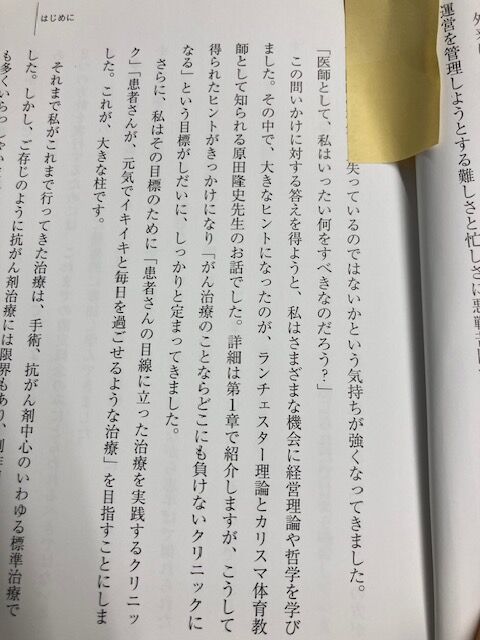 運営を管理しようとする難しさと忙しさに悪戦苦闘
はじめに
失っているのではないかという気持ちが強くなってきました。
「医師として、私はいったい何をすべきなのだろう?」
この問いかけに対する答えを得ようと、私はさまざまな機会に経営理論や哲学を学び
ました。その中で、大きなヒントになったのが、ランチェスター理論とカリスマ体育教
師として知られる原田隆史先生のお話でした。詳細は第1章で紹介しますが、こうして
得られたヒントがきっかけになり「がん治療のことならどこにも負けないクリニックに
なる」という目標がしだいに、しっかりと定まってきました。
さらに、私はその目標のために「患者さんの目線に立った治療を実践するクリニッ
ク」「患者さんが、元気でイキイキと毎日を過ごせるような治療」を目指すことにしま
した。これが、大きな柱です。
それまで私がこれまで行ってきた治療は、手術、抗がん剤中心のいわゆる標準治療で
した。しかし、ご存じのように抗がん剤治療には限界もあり、副作用
も多くいらっしゃい